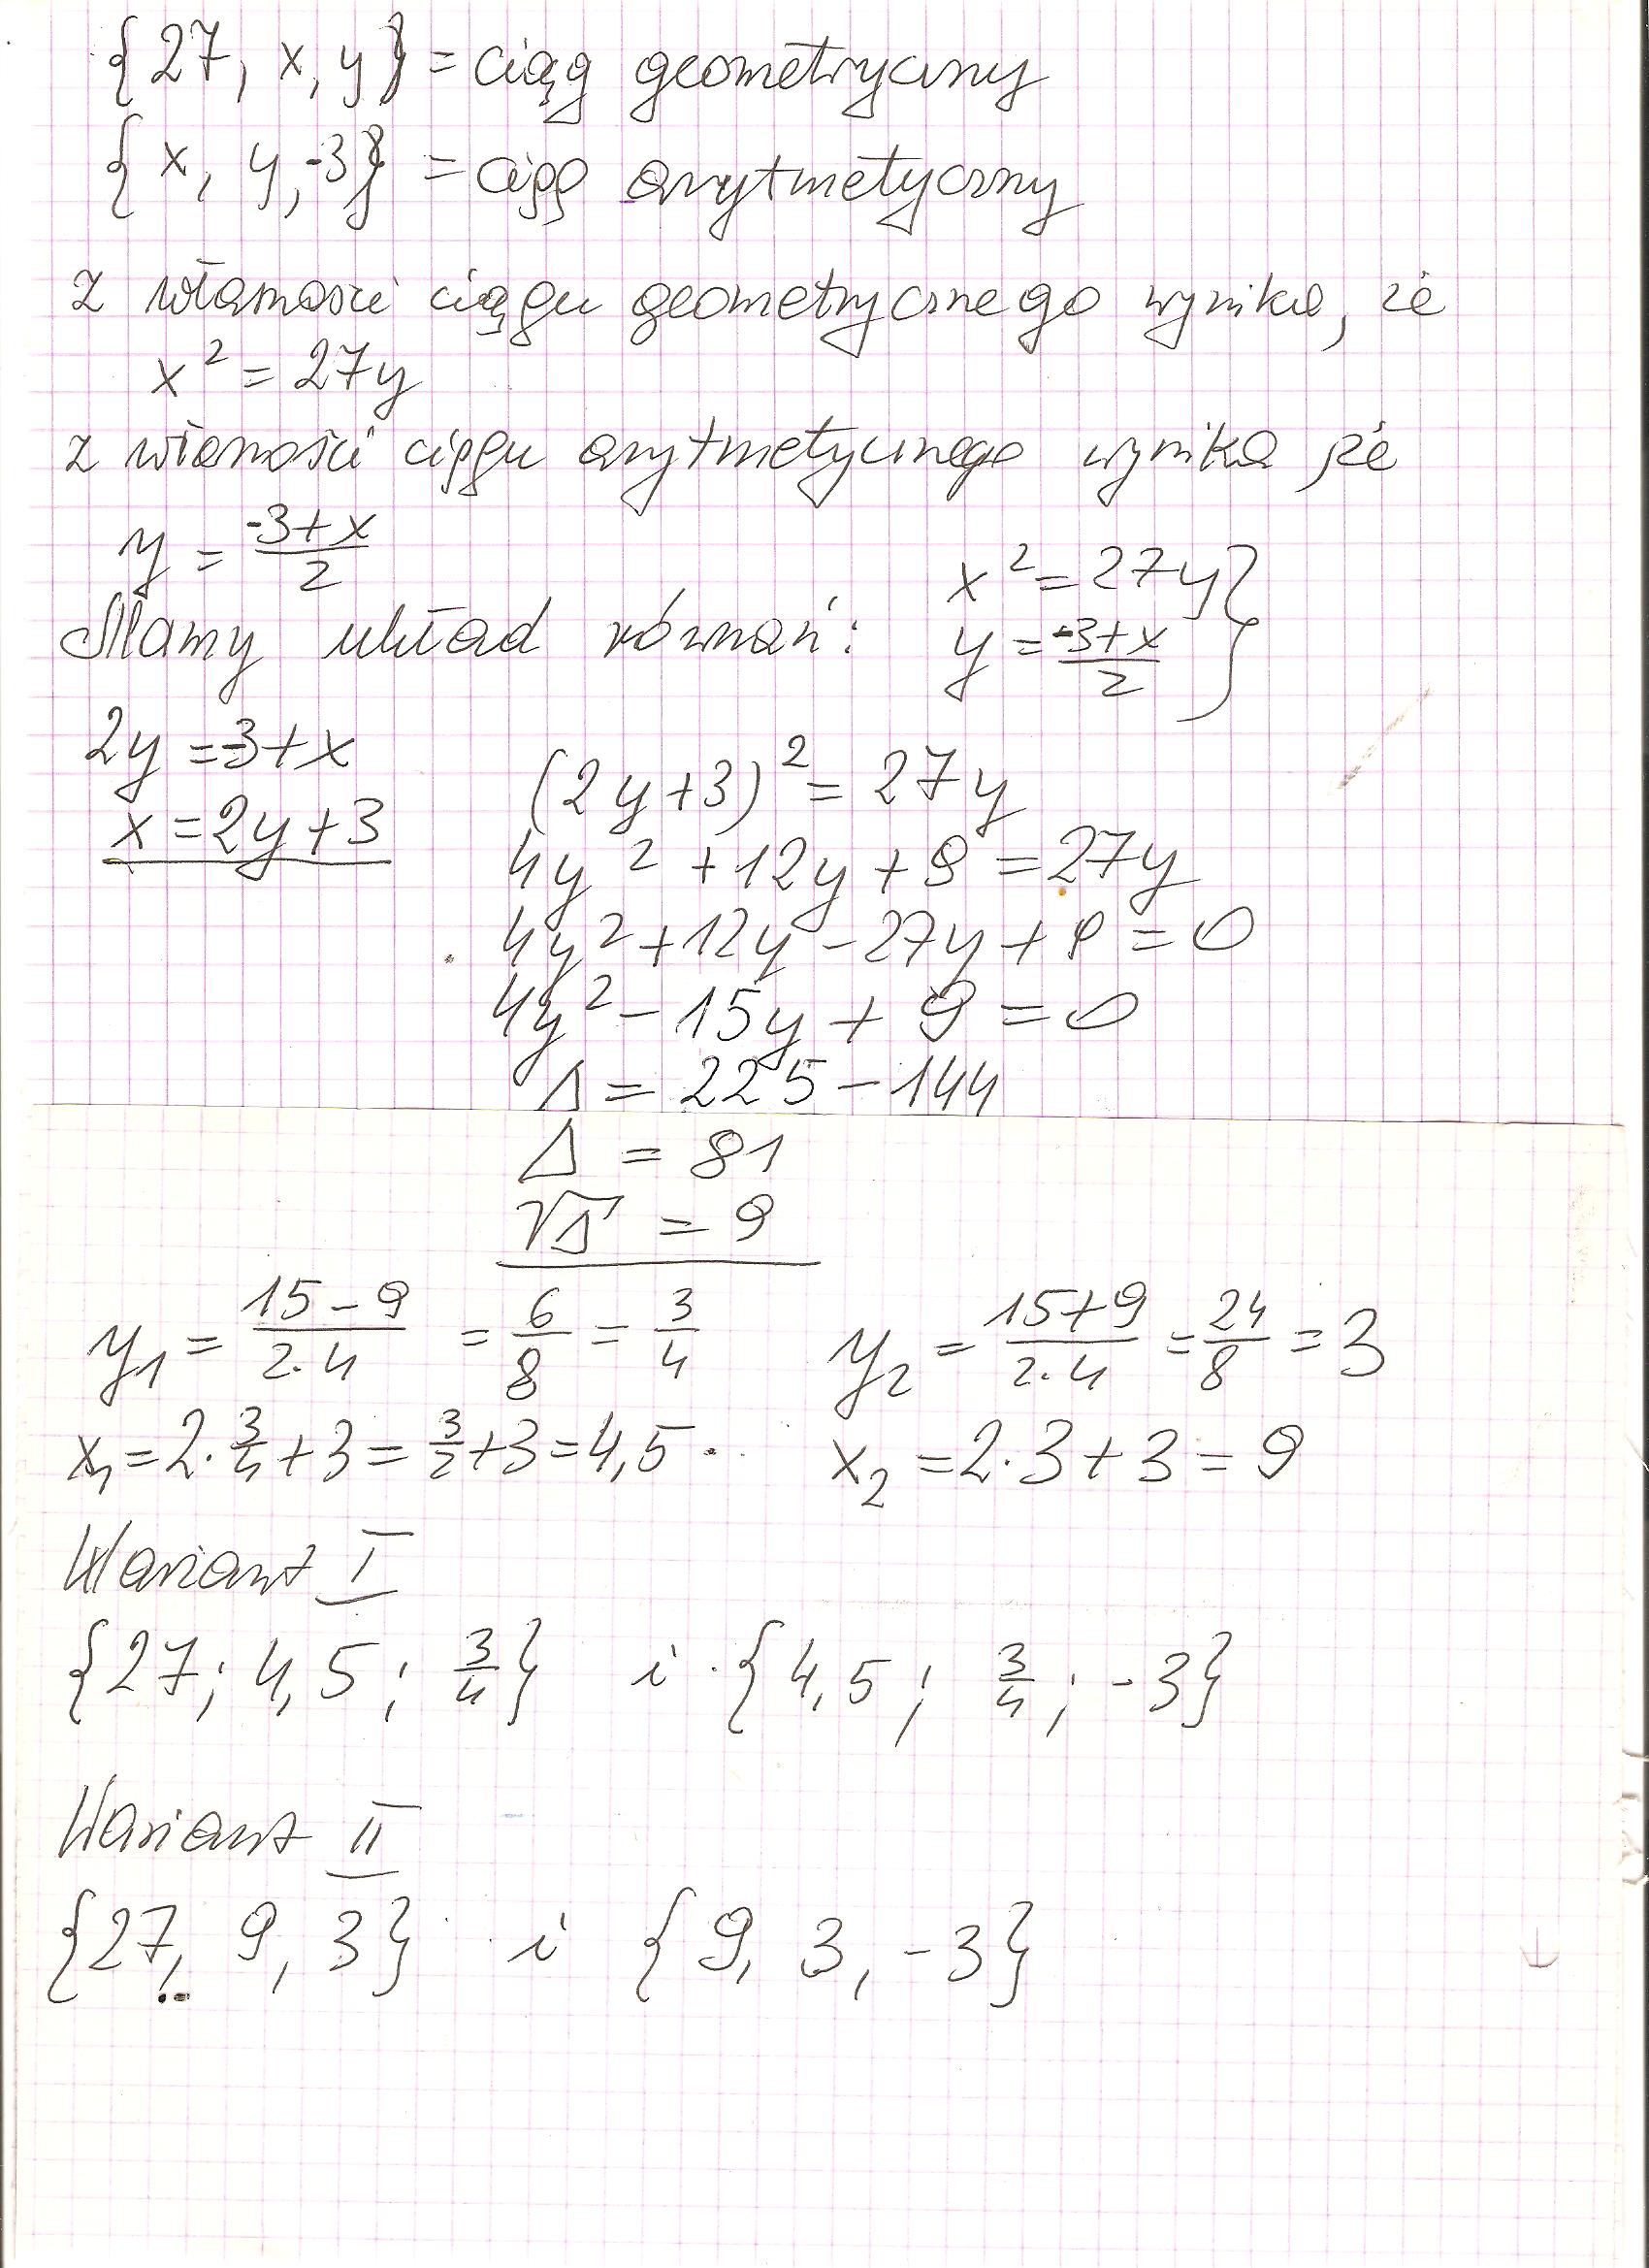 {27, x, y} = ciąg geometryczny
{x, y, -3} = ciąg arytmetyczny
z własności ciągu geometrycznego wynika, że
x² = 27y
z własności ciągu arytmetycznego wynika, że
y = \frac{-3+x}{2}
Mamy układ równań: x² = 27y }
y = \frac{-3+x}{2}
2y = -3+x
x = 2y+3
(2y+3)² = 27y
4y² + 12y + 9 = 27y
4y² + 12y - 27y + 9 = 0
4y² - 15y + 9 = 0
Δ = 225 - 144
Δ = 81
√Δ = 9
y₁ = \frac{15-9}{2·4} = \frac{6}{8} = \frac{3}{4} y₂ = \frac{15+9}{2·4} = \frac{24}{8} = 3
x₁ = 2·\frac{3}{4} + 3 = \frac{3}{2} + 3 = 4,5 x₂ = 2·3 + 3 = 9
Wariant I
{27; 4,5; \frac{3}{4}} i {4,5; \frac{3}{4}; -3}
Wariant II
{27, 9, 3} i {9, 3, -3}